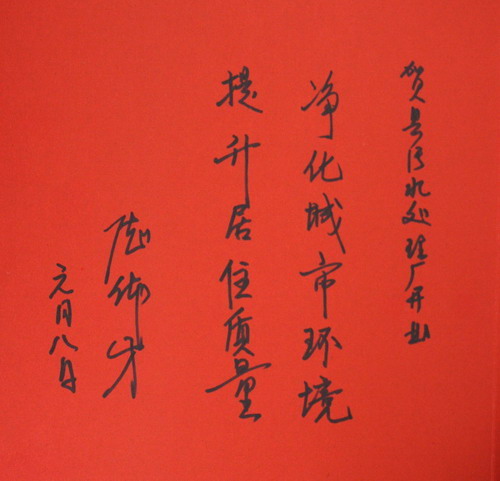 贺县污水处理厂开业
净化城市环境
提升居住质量
元月八日